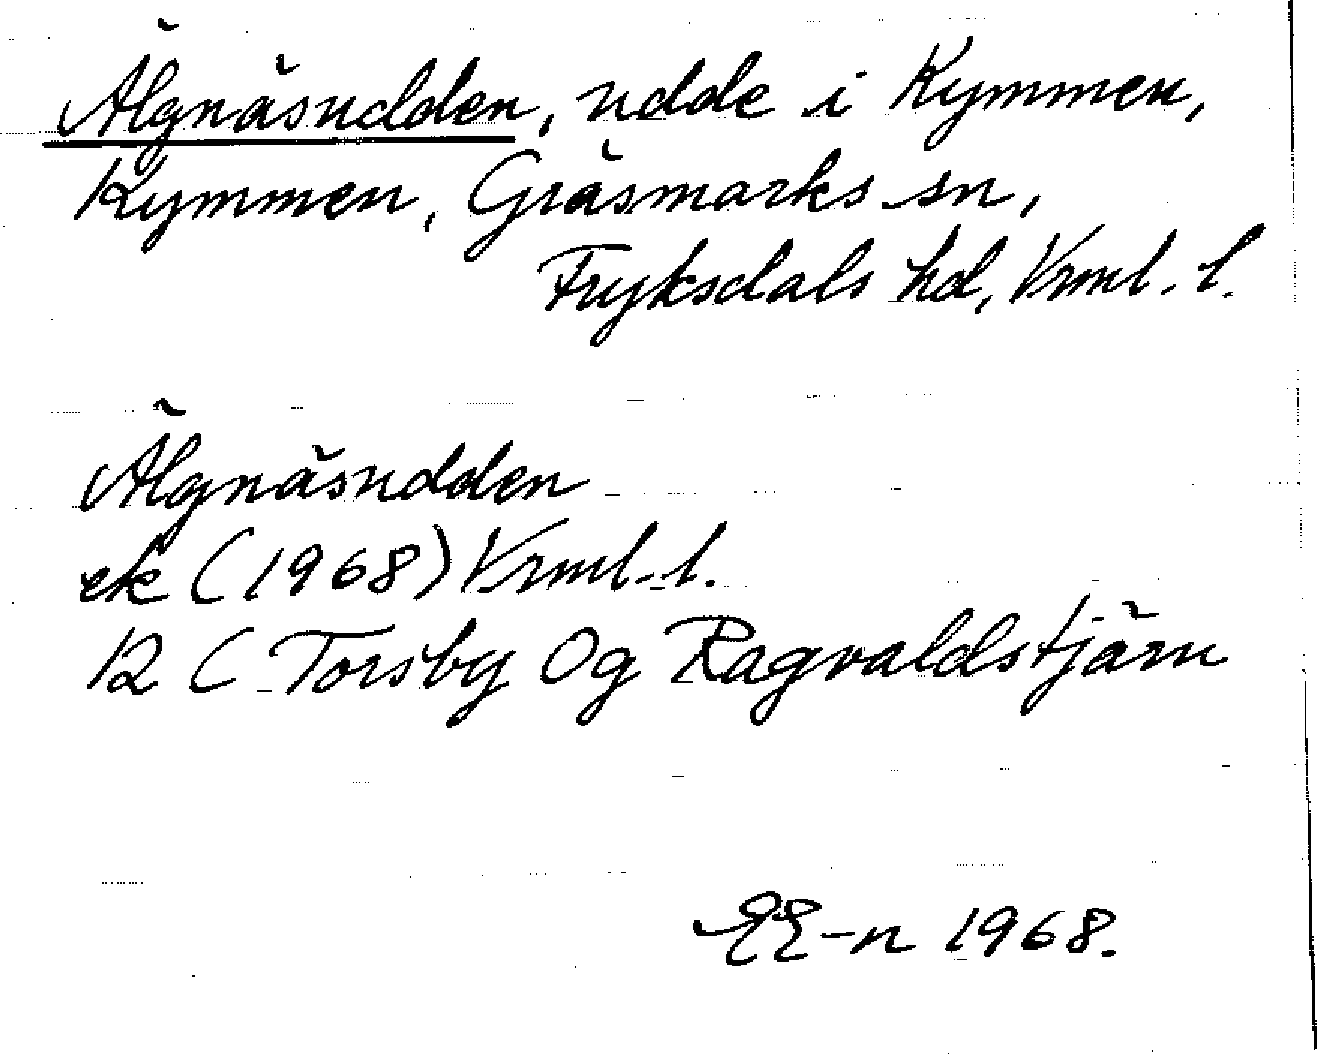 Älgnäsudden, udde i Kymmen,
Kymmen, Gräsmarks sn,
Fryksdals hd, Vrml. l.
Älgnäsudden
ek (1968) Vrml. l.
12 C Torsby 0g Ragvaldstjärn
EE-n 1968.